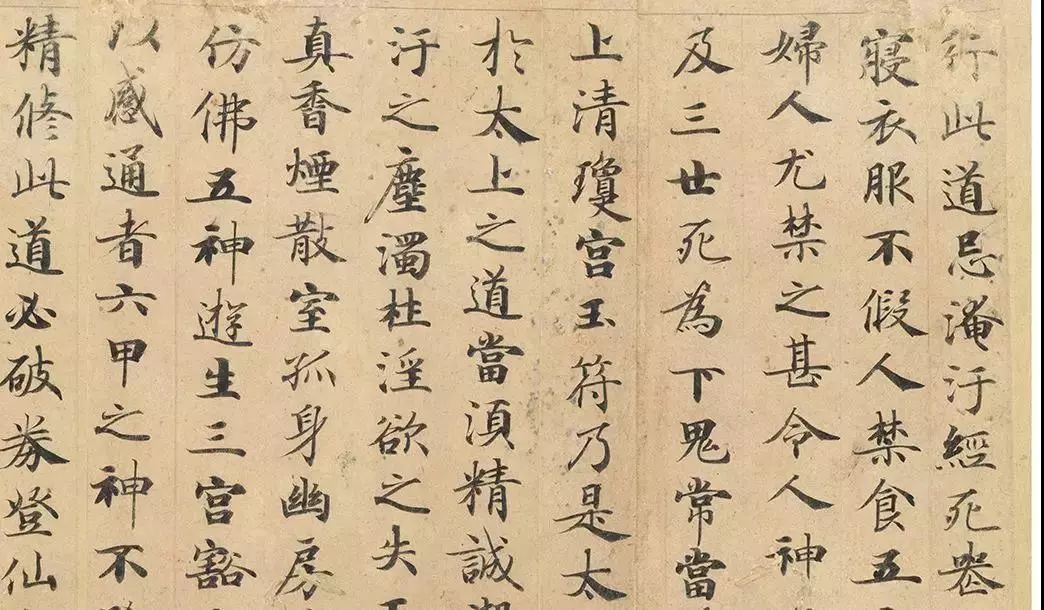 行此道忌淹汙經死丧
寢衣服不假人禁食五
婦人尤禁之甚令人神
及三世死為下鬼常當
上清瓊宮玉符乃是太
於太上之道當湏精誠
汙之塵濁柱淫欲之失
真香煙散室孤身幽房
仿佛五神遊生三宮豁
以感通者六甲之神不
精修此道必破券登仙